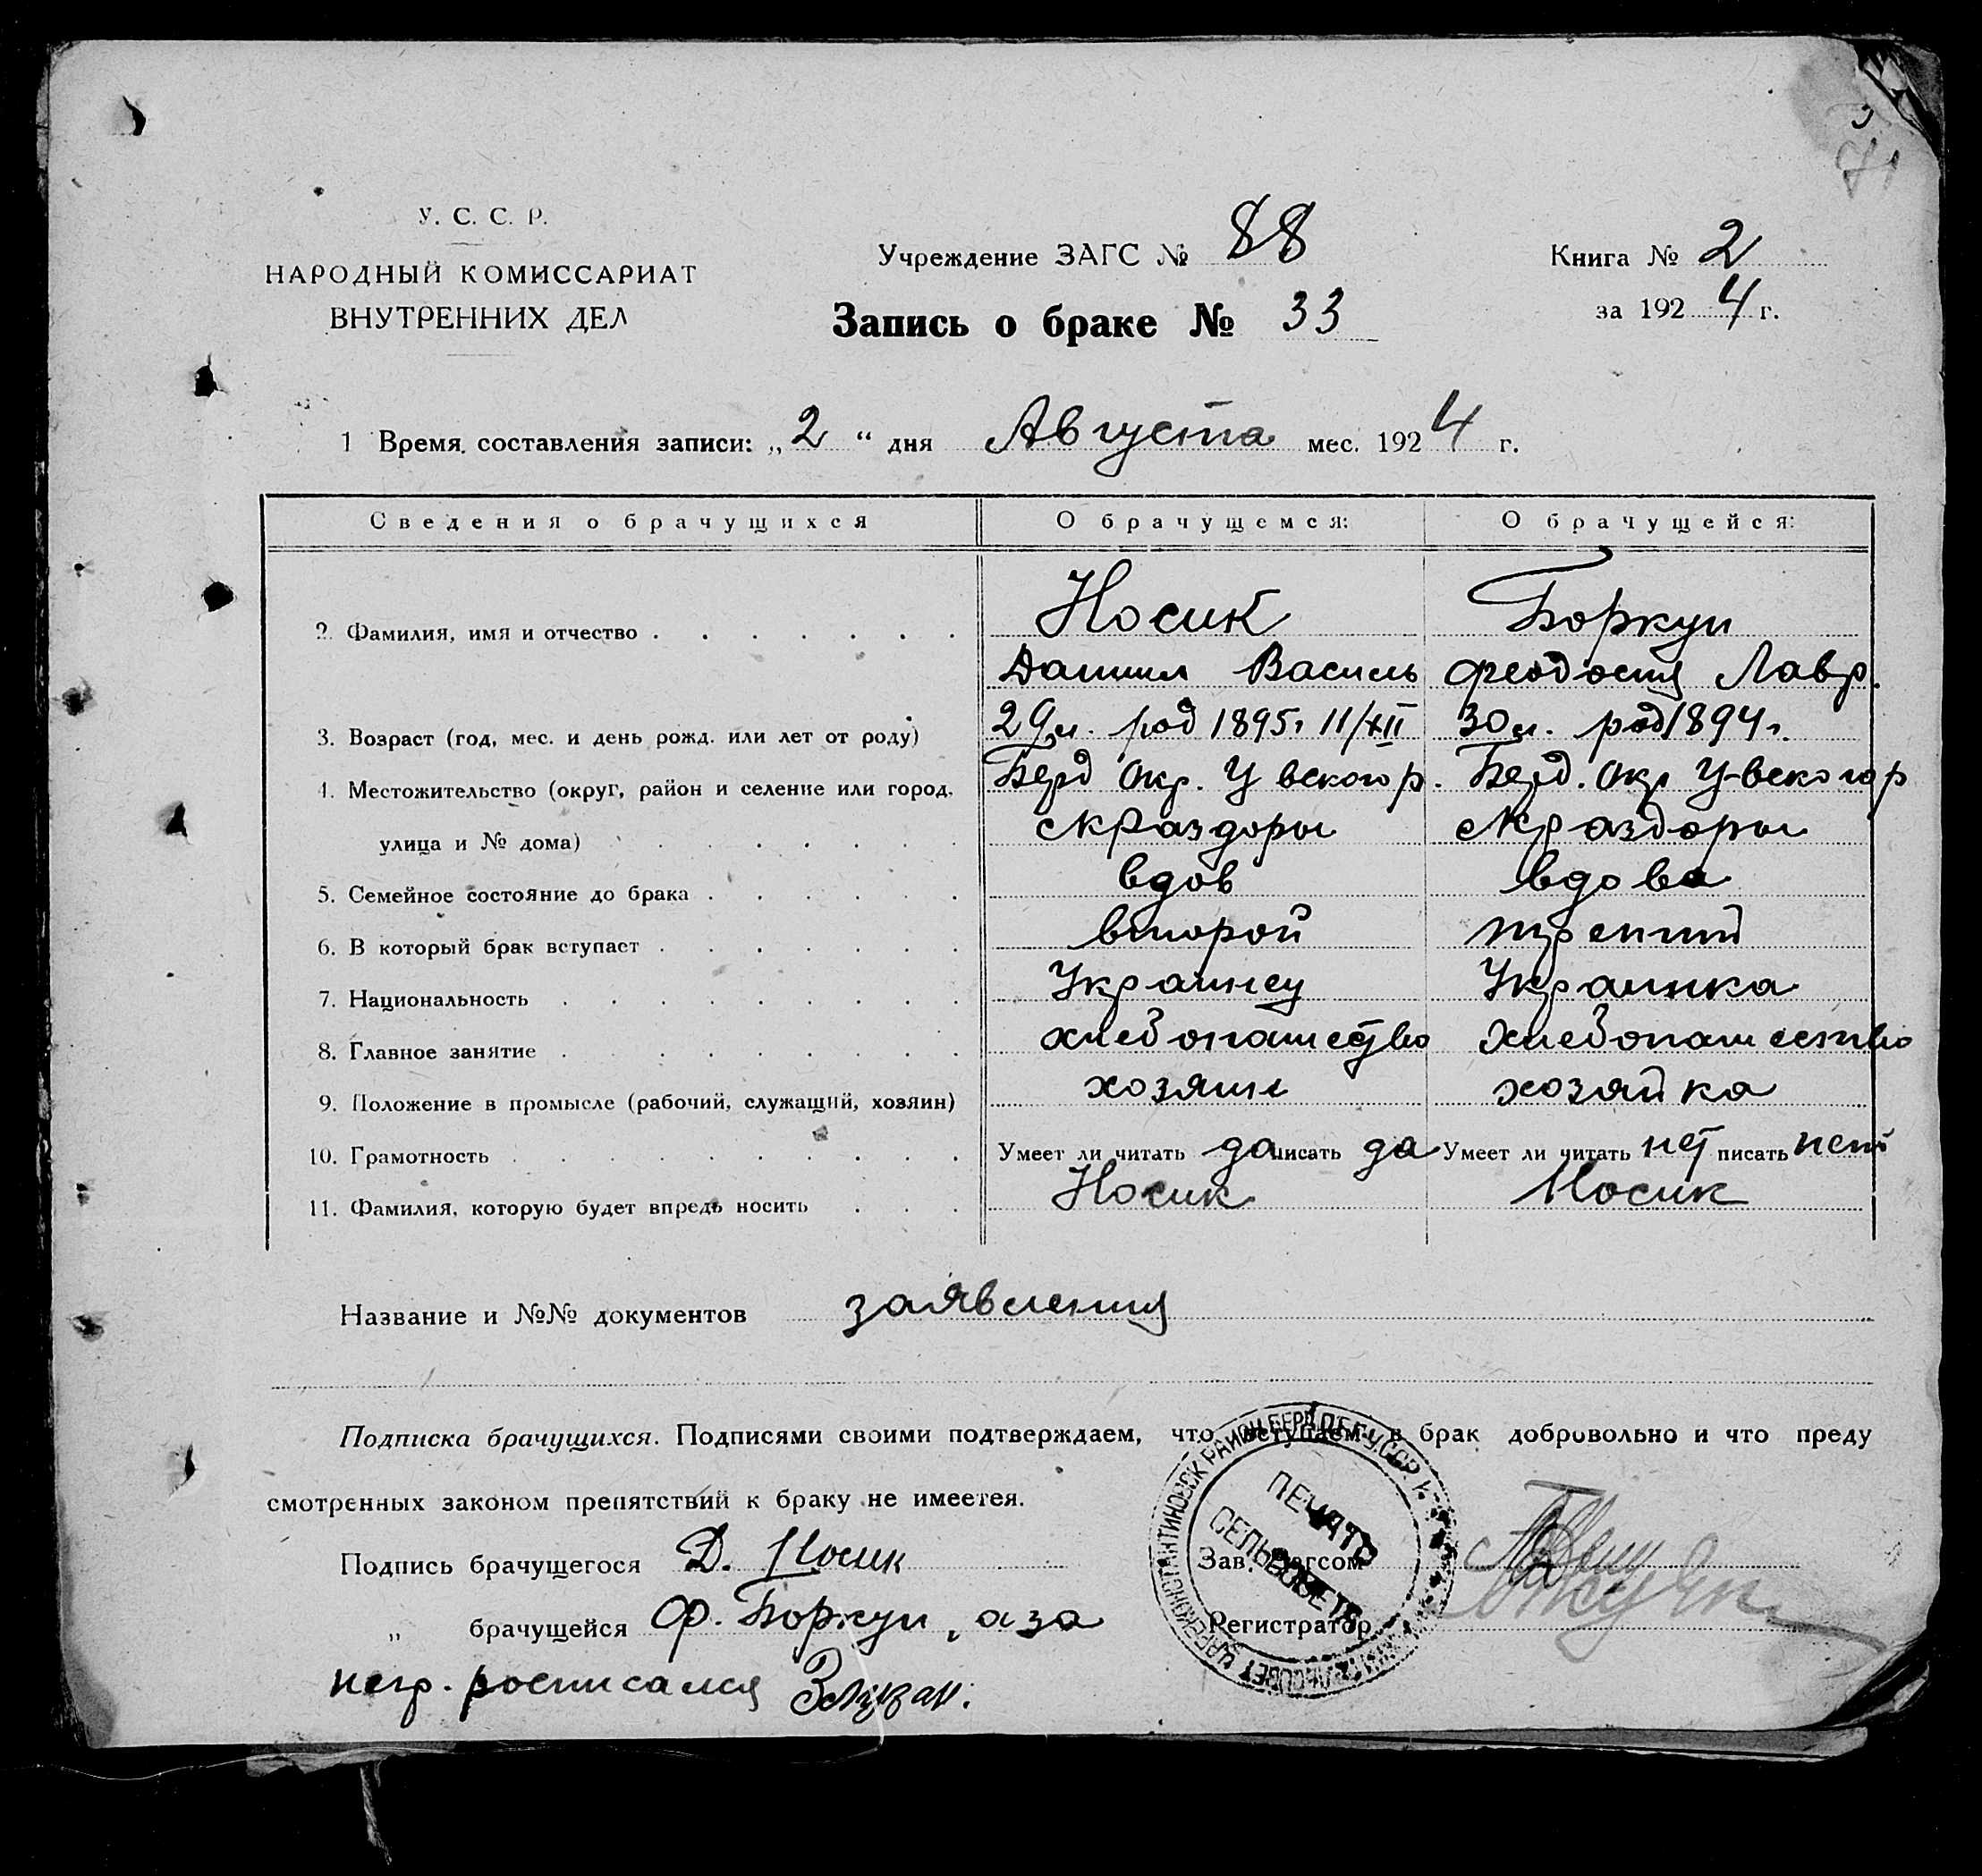 У. С. С. Р.
НАРОДНЫЙ КОМИССАРИАТ
ВНУТРЕННИХ ДЕЛ
Учреждение ЗАГС № 88
Запись о браке № 33
Книга № 2
за 1924 г.
1 Время составления записи: „2“ дня Августа мес. 1924 г.
Сведения о брачущихся О брачущемся: О брачущейся:
2. Фамилия, имя и отчество Носик Боркун
Даниил Василь Феодосия Лавр.
3. Возраст (год, мес. и день рожд. или лет от роду) 29 л. род 1895 г 11/XII 30 л. род 1894 г.
4. Местожительство (округ, район и селение или город, Берд Окр. Ц векого р. Берд. Окр Ц-векого р
улица и № дома) с Краздоры с Краздоры
5. Семейное состояние до брака вдов вдова
6. В который брак вступает второй третий
7. Национальность Украинец Украинка
8. Главное занятие хлебопашество хлебопашество
9. Положение в промысле (рабочий, служащий, хозяин) хозяин хозяйка
10. Грамотность Умеет ли читать да писать да Умеет ли читать нет писать нет
11. Фамилия, которую будет впредь носить Носик Носик
Название и №№ документов заявления
Подписка брачущихся. Подписями своими подтверждаем, что вступаем в брак добровольно и что преду
смотренных законом препятствий к браку не имеетея.
Подпись брачущегося Д. Носик
„ брачущейся Ф. Боркун, а за
негр. росписался
Зав. Загсом
Регистратор
ПЕЧАТЬ
СЕЛЬСОВЕТА